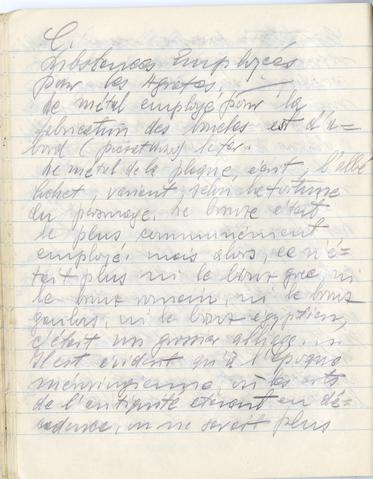 Substances Employées
pour les Agrafes.
Le métal employé pour la
fabrication des boucles est d'a=
bord ( ) le fer.
Le métal de la plaque, écrit l'abbé
Cochet, variait selon la fortune
du personnage. Le bronze était
le plus communément
employé: mais alors, ce n'é=
tait plus ni le bronze grec, ni
le bronze romain, ni le bronze
gaulois, ni le bronze égyptien,
c'était un grossier alliage.
Il est évident qu'à l'époque
mérovingienne où les arts
de l'antiquité étaient en dé=
cadence, on ne savait plus